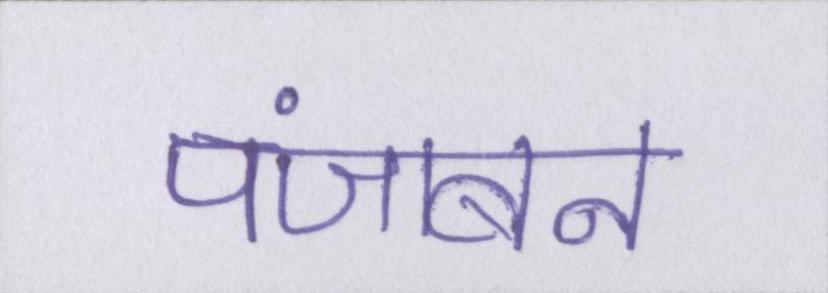 पंजाबन